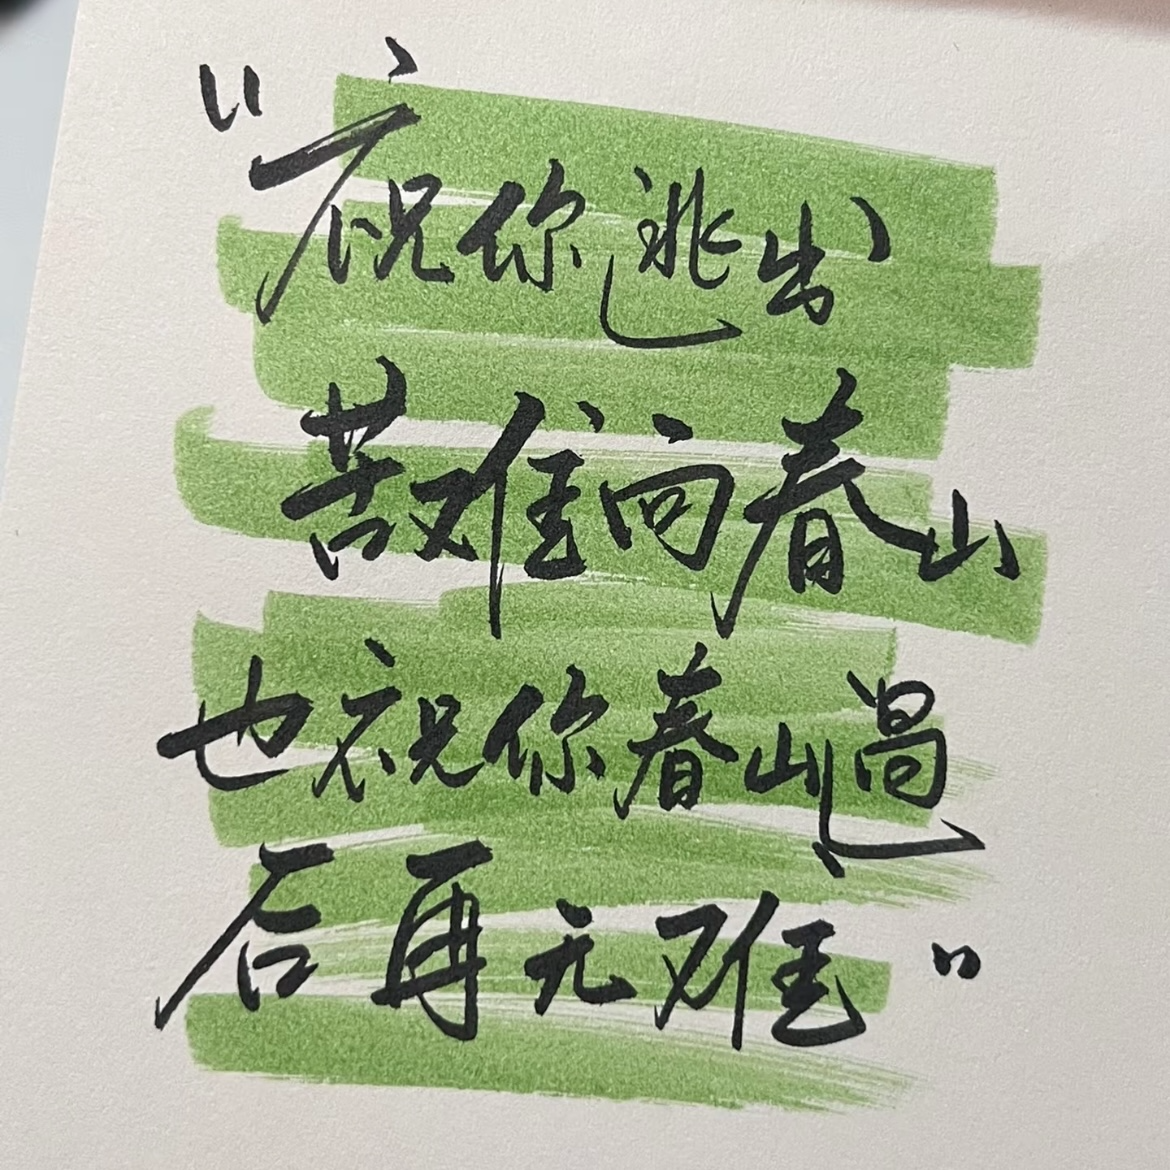 “祝你逃出
苦难向春山
也祝你春山过
后再无难”